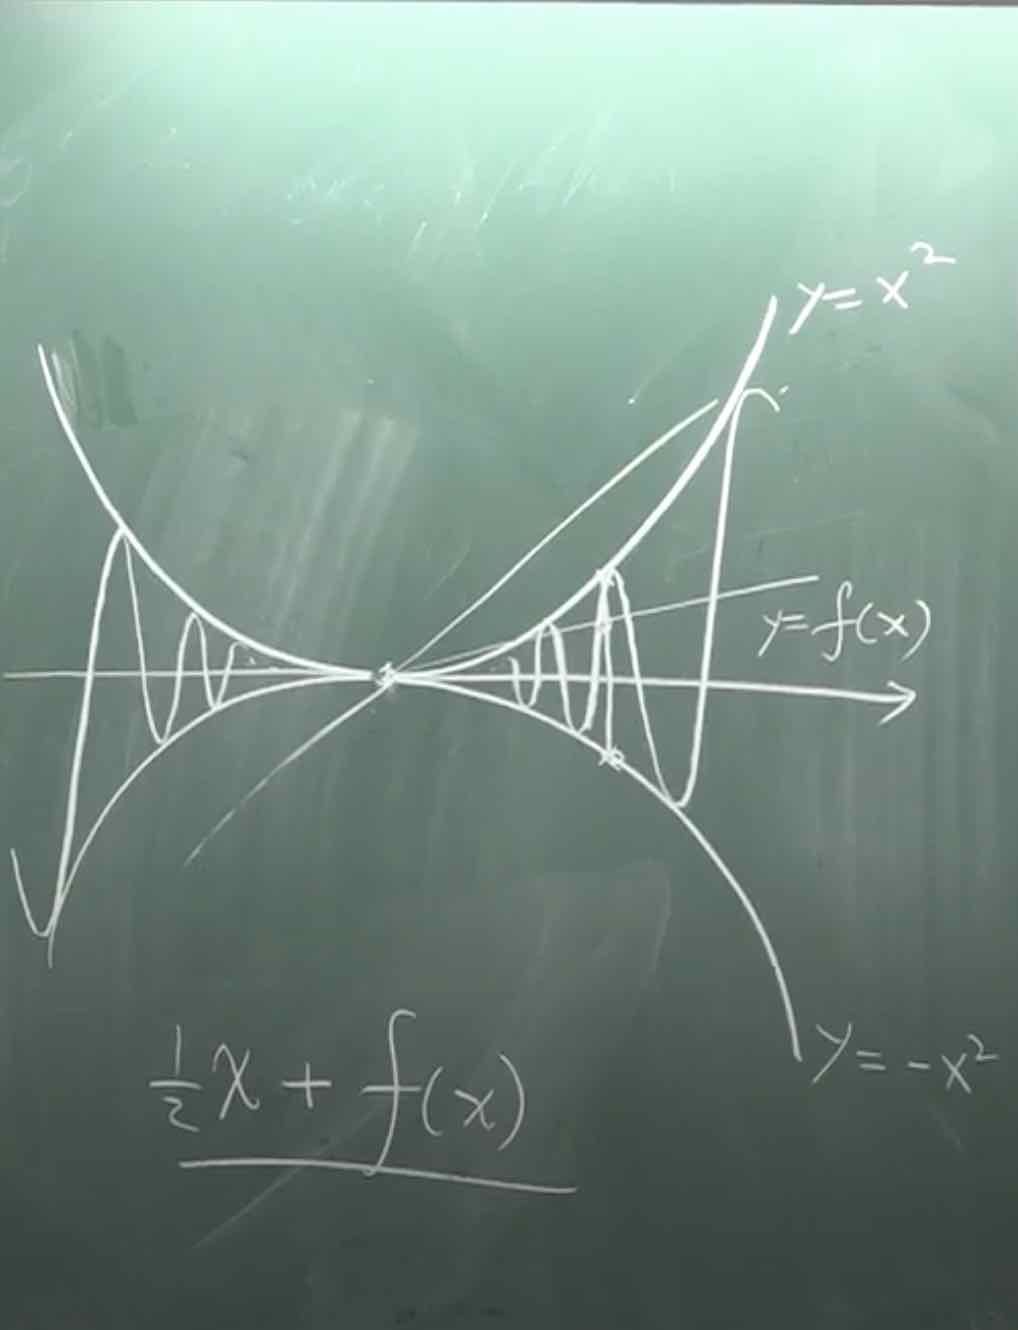 y = x²
y = f(x)
y = -x²
½x + f(x)